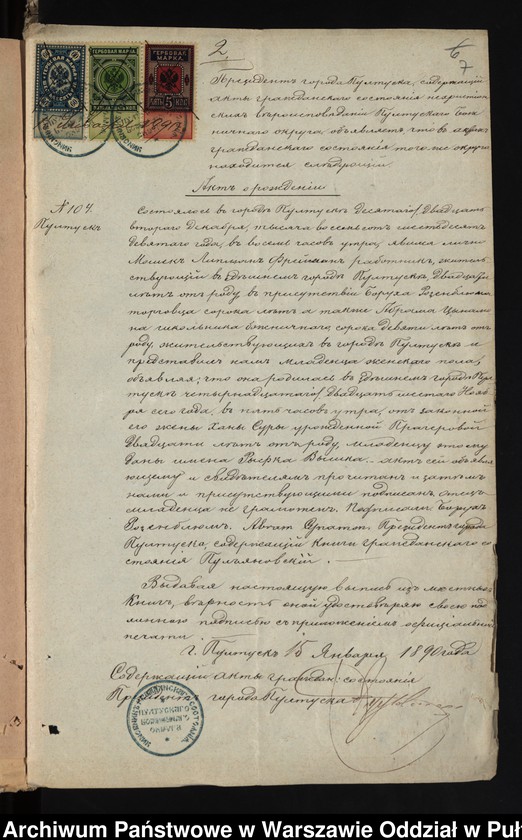 2.
6
7
ГЕРБОВАЯ МАРКА
ГЕРБОВАЯ МАРКА
5
Президентъ города Пултуска, содержащій
акты гражданскаго состоянія нехристіан
скихъ вѣроисповѣданій Пултускаго Бож
ничнаго округа, объявляетъ что въ актахъ
гражданскаго состоянія того же округа
находится слѣдующій:
Актъ о рожденіи.
№ 104.
Пултускъ
Состоялось въ городѣ Пултускѣ Десятаго/Двадцать
втораго Декабря, тысяча восемьсотъ шестьдесятъ
девятаго года, въ восемь часовъ утра, явился лично
Мошекъ Липманъ работникъ, житель
ствующій въ здѣшнемъ городѣ Пултускѣ, двадцати
лѣтъ отъ роду, въ присутствіи Боруха Розенблюма
торговца сорока лѣтъ а также Абрама
школьника божничнаго, сорока девяти лѣтъ отъ
роду, жительствующихъ въ городѣ Пултускѣ и
представилъ намъ младенца женскаго пола,
объявляя, что она родилась въ здѣшнемъ городѣ Пул
тускѣ четырнадцатаго/двадцать шестаго Нояб
ря сего года, въ пять часовъ утра, отъ законной
его жены Ханы Суры урожденной
двадцати лѣтъ отъ роду, младенцу этому
даны имена Рыфка Вышка. актъ сей объявля
ющему и свидѣтелямъ прочитанъ и затѣмъ
нами и присутствующими подписанъ отецъ
младенца не грамотенъ. Подписали Борухъ
Розенблюмъ. Президентъ города
Пултуска, содержащій книги гражданскаго со
стоянія Пульяновскій.
Выдавая настоящую выпись изъ мѣстныхъ
книгъ, вѣрность оной удостовѣряю своею под
линною подписью съ приложеніемъ офиціальной
печати.
г. Пултускъ 15 Января 1890 года
Содержащій акты граждан: состоянія
Президентъ города Пултуска
Archiwum Państwowe w Warszawie Oddział w Puł